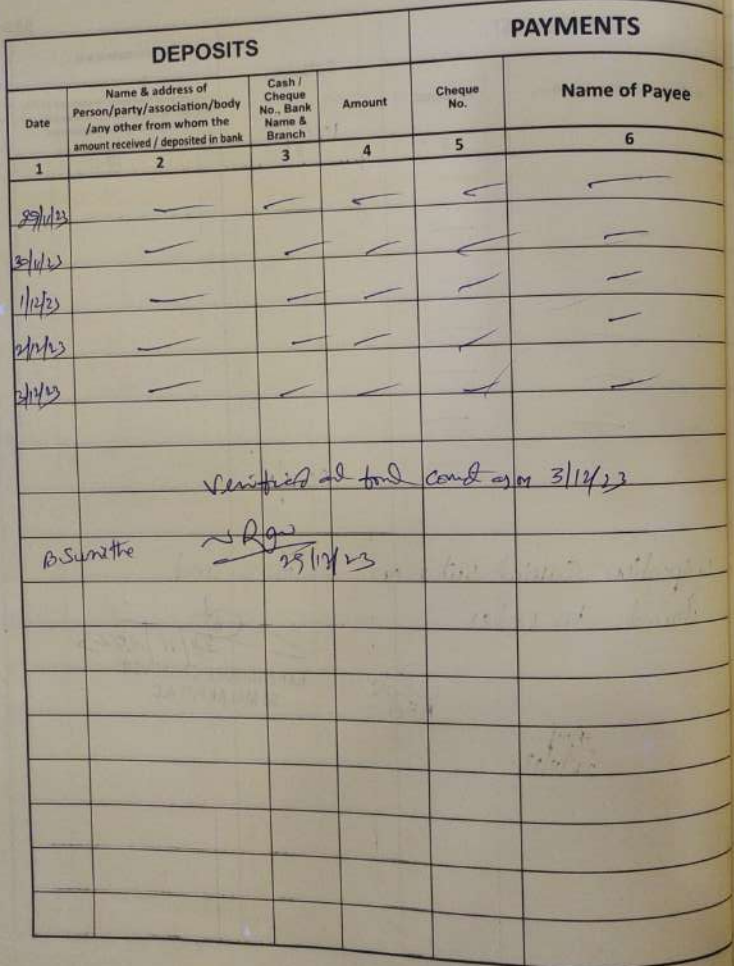 DEPOSITS PAYMENTS
Date Name & address of Person/party/association/body /any other from whom the amount received / deposited in bank Cash / Cheque No., Bank Name & Branch Amount Cheque No. Name of Payee
1 2 3 4 5 6
29/11/23 — — — — —
30/11/23 — — — — —
1/12/23 — — — — —
2/12/23 — — — — —
3/12/23 — — — — —
Verified and found correct as on 3/12/23
B.Sunithe
29/12/23